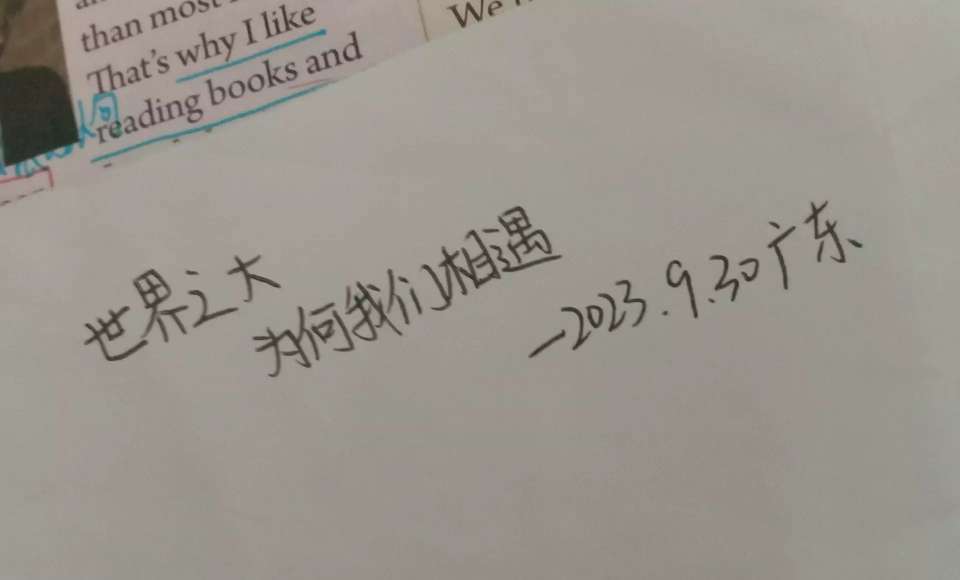 than most
That's why I like
reading books and
We
世界之大
为何我们相遇
—2023.9.30广东